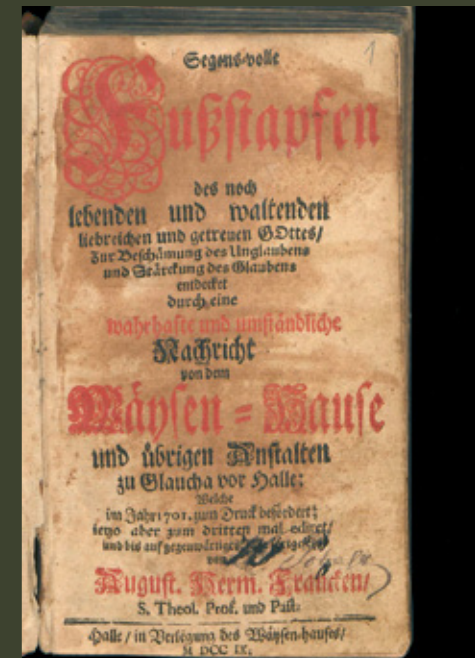 Segens-volle
1
Fußstapfen
des noch
lebenden und waltenden
liebreichen und getreuen GOttes/
Zur Beschämung des Unglaubens
und Stärckung des Glaubens
entdecket
durch eine
wahrhafte und umständliche
Nachricht
von dem
Wäysen = Hause
und übrigen Anstalten
zu Glaucha vor Halle:
Welche
im Jahr 1701. zum Druck befördert;
ietzo aber zum dritten mal ediret/
und bis auf gegenwärtiges
von
August. Herm. Francken/
S. Theol. Prof. und Past.
Halle / in Verlegung des Wäysen-hauses/
M DCC IX.